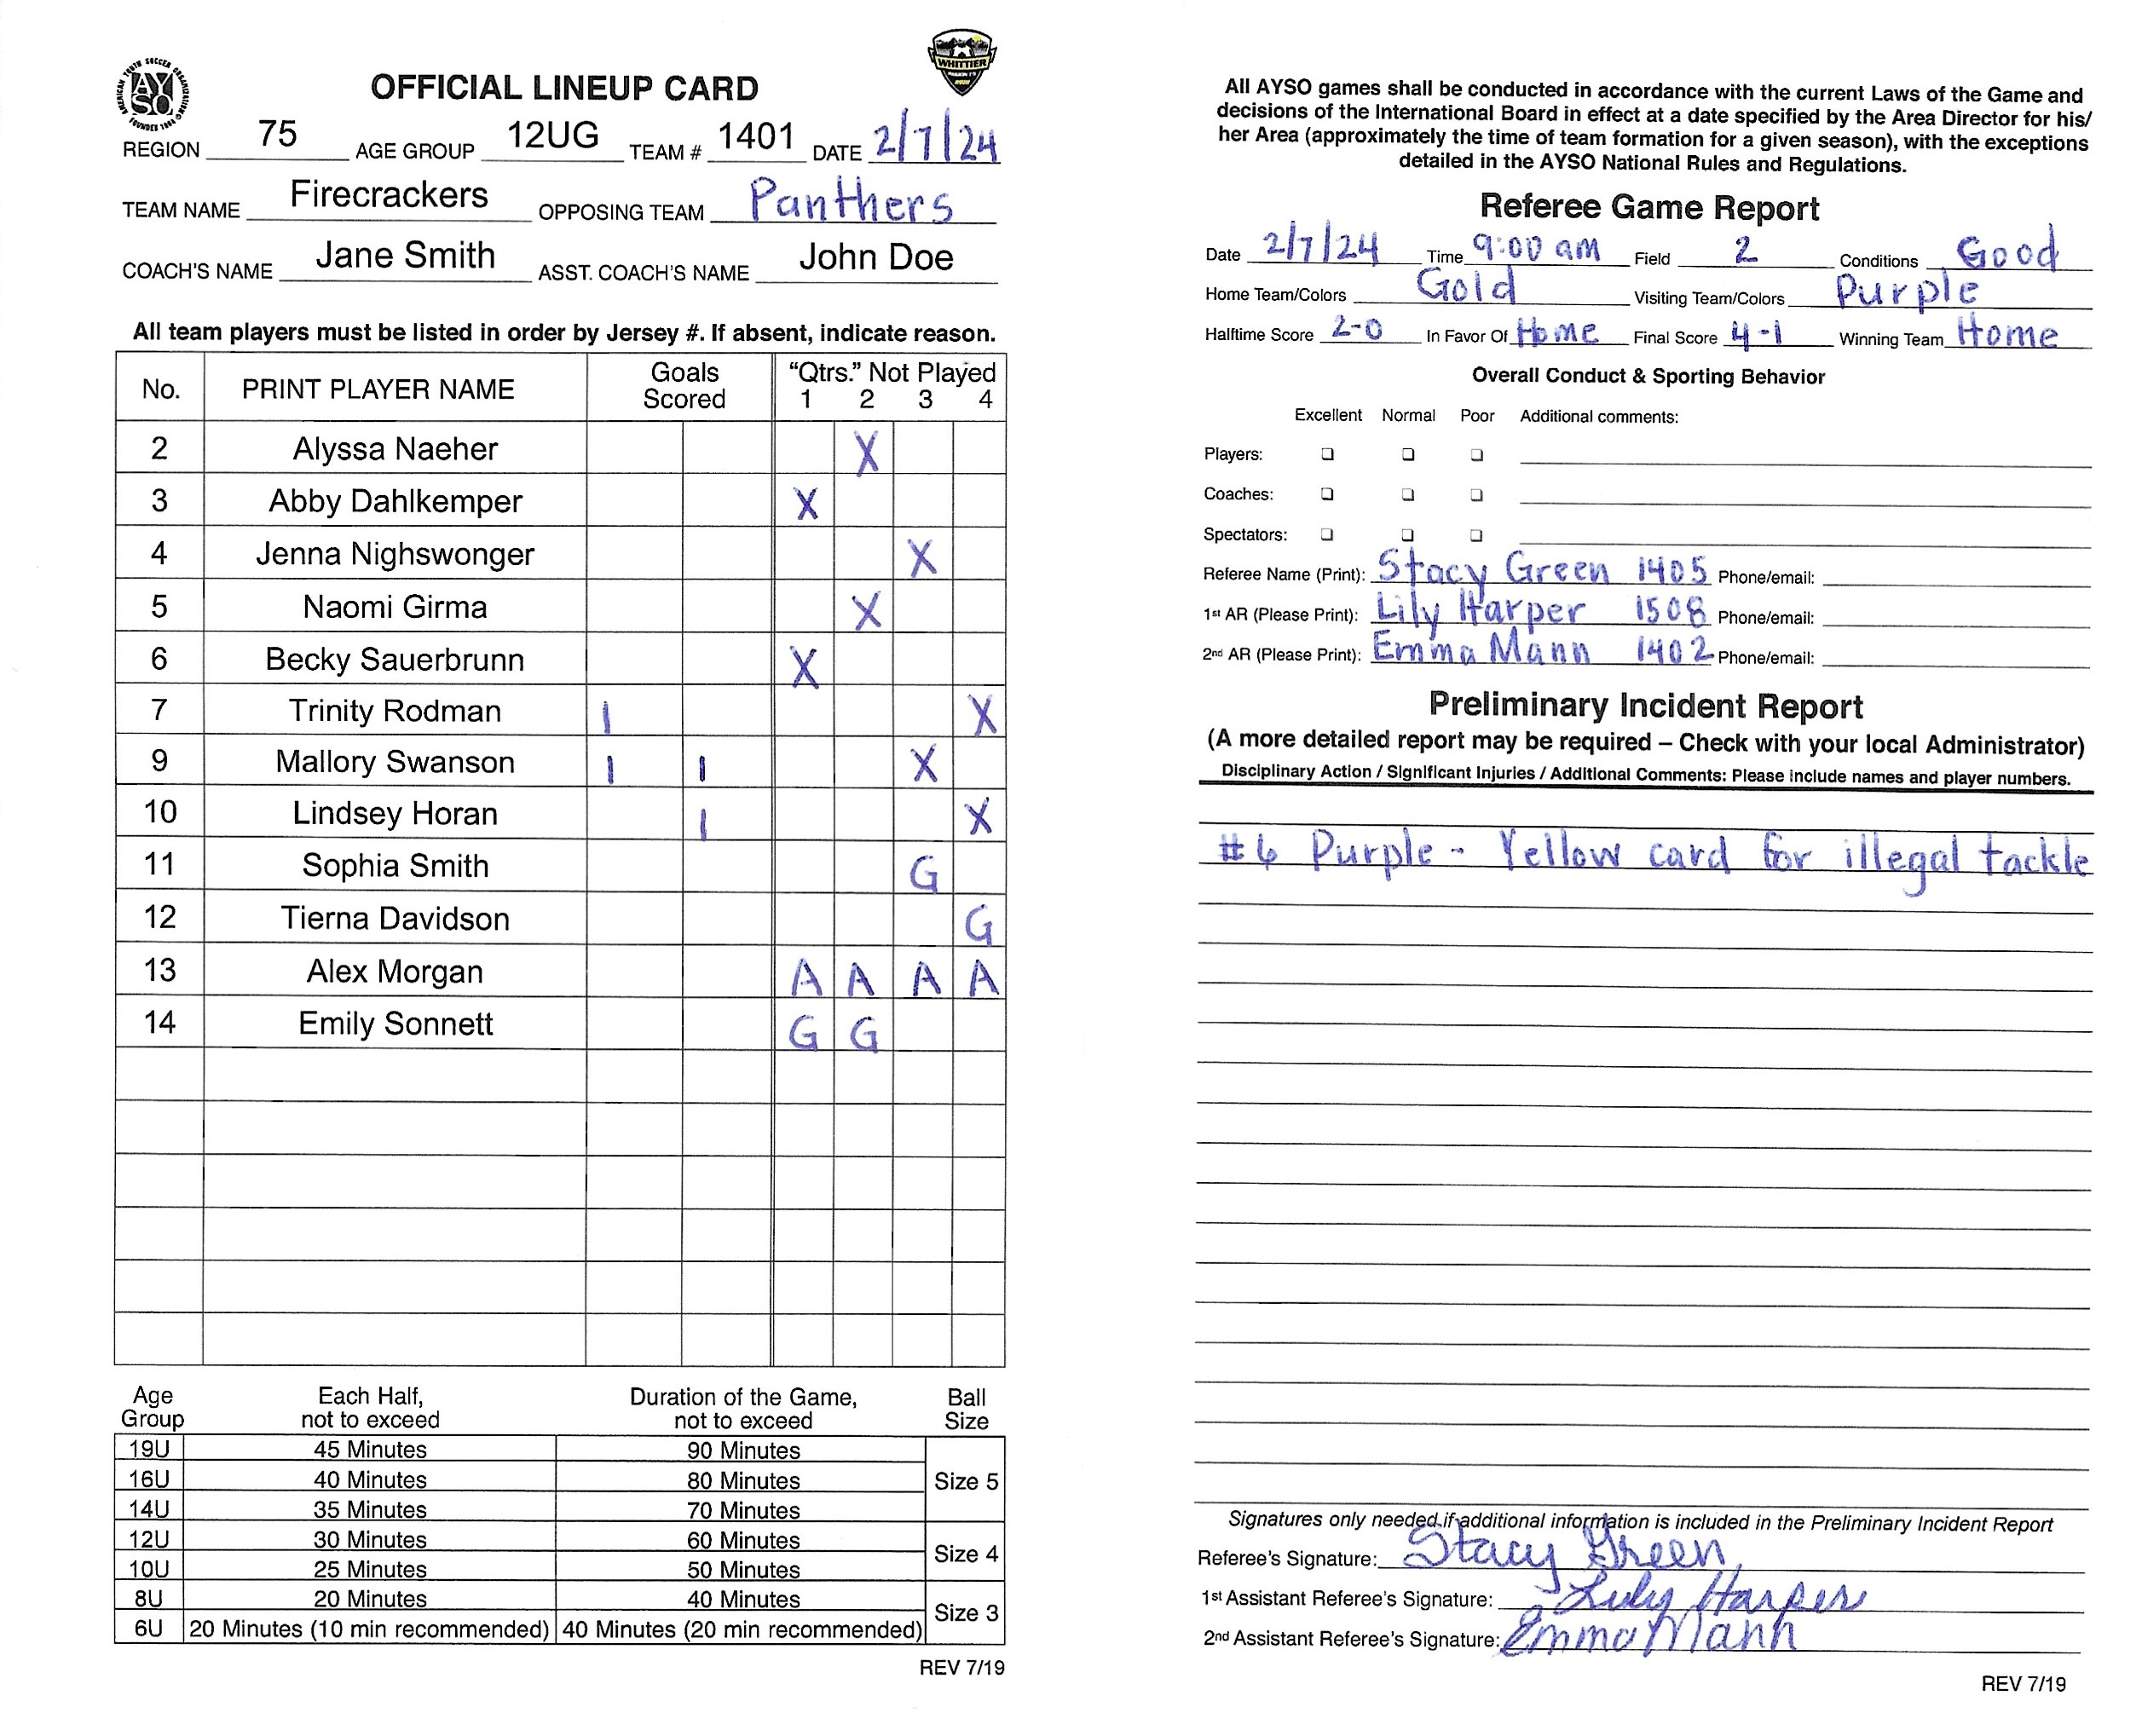 AMERICAN YOUTH SOCCER ORGANIZATION
AYSO
FOUNDED 1964
WHITTIER
OFFICIAL LINEUP CARD
REGION 75 AGE GROUP 12UG TEAM # 1401 DATE 2/7/24
TEAM NAME Firecrackers OPPOSING TEAM Panthers
COACH'S NAME Jane Smith ASST. COACH'S NAME John Doe
All team players must be listed in order by Jersey #. If absent, indicate reason.
No. PRINT PLAYER NAME Goals Scored "Qtrs." Not Played 1 2 3 4
2 Alyssa Naeher X
3 Abby Dahlkemper X
4 Jenna Nighswonger X
5 Naomi Girma X
6 Becky Sauerbrunn X
7 Trinity Rodman | X
9 Mallory Swanson | | X
10 Lindsey Horan | X
11 Sophia Smith G
12 Tierna Davidson G
13 Alex Morgan A A A A
14 Emily Sonnett G G
Age Group Each Half, not to exceed Duration of the Game, not to exceed Ball Size
19U 45 Minutes 90 Minutes
16U 40 Minutes 80 Minutes Size 5
14U 35 Minutes 70 Minutes
12U 30 Minutes 60 Minutes Size 4
10U 25 Minutes 50 Minutes
8U 20 Minutes 40 Minutes Size 3
6U 20 Minutes (10 min recommended) 40 Minutes (20 min recommended)
REV 7/19
All AYSO games shall be conducted in accordance with the current Laws of the Game and
decisions of the International Board in effect at a date specified by the Area Director for his/
her Area (approximately the time of team formation for a given season), with the exceptions
detailed in the AYSO National Rules and Regulations.
Referee Game Report
Date 2/7/24 Time 9:00 am Field 2 Conditions Good
Home Team/Colors Gold Visiting Team/Colors Purple
Halftime Score 2-0 In Favor Of Home Final Score 4-1 Winning Team Home
Overall Conduct & Sporting Behavior
Excellent Normal Poor Additional comments:
Players:
Coaches:
Spectators:
Referee Name (Print): Stacy Green 1405 Phone/email:
1st AR (Please Print): Lily Harper 1508 Phone/email:
2nd AR (Please Print): Emma Mann 1402 Phone/email:
Preliminary Incident Report
(A more detailed report may be required – Check with your local Administrator)
Disciplinary Action / Significant Injuries / Additional Comments: Please include names and player numbers.
#6 Purple - Yellow card for illegal tackle
Signatures only needed if additional information is included in the Preliminary Incident Report
Referee's Signature: Stacy Green
1st Assistant Referee's Signature: Lily Harper
2nd Assistant Referee's Signature: Emma Mann
REV 7/19